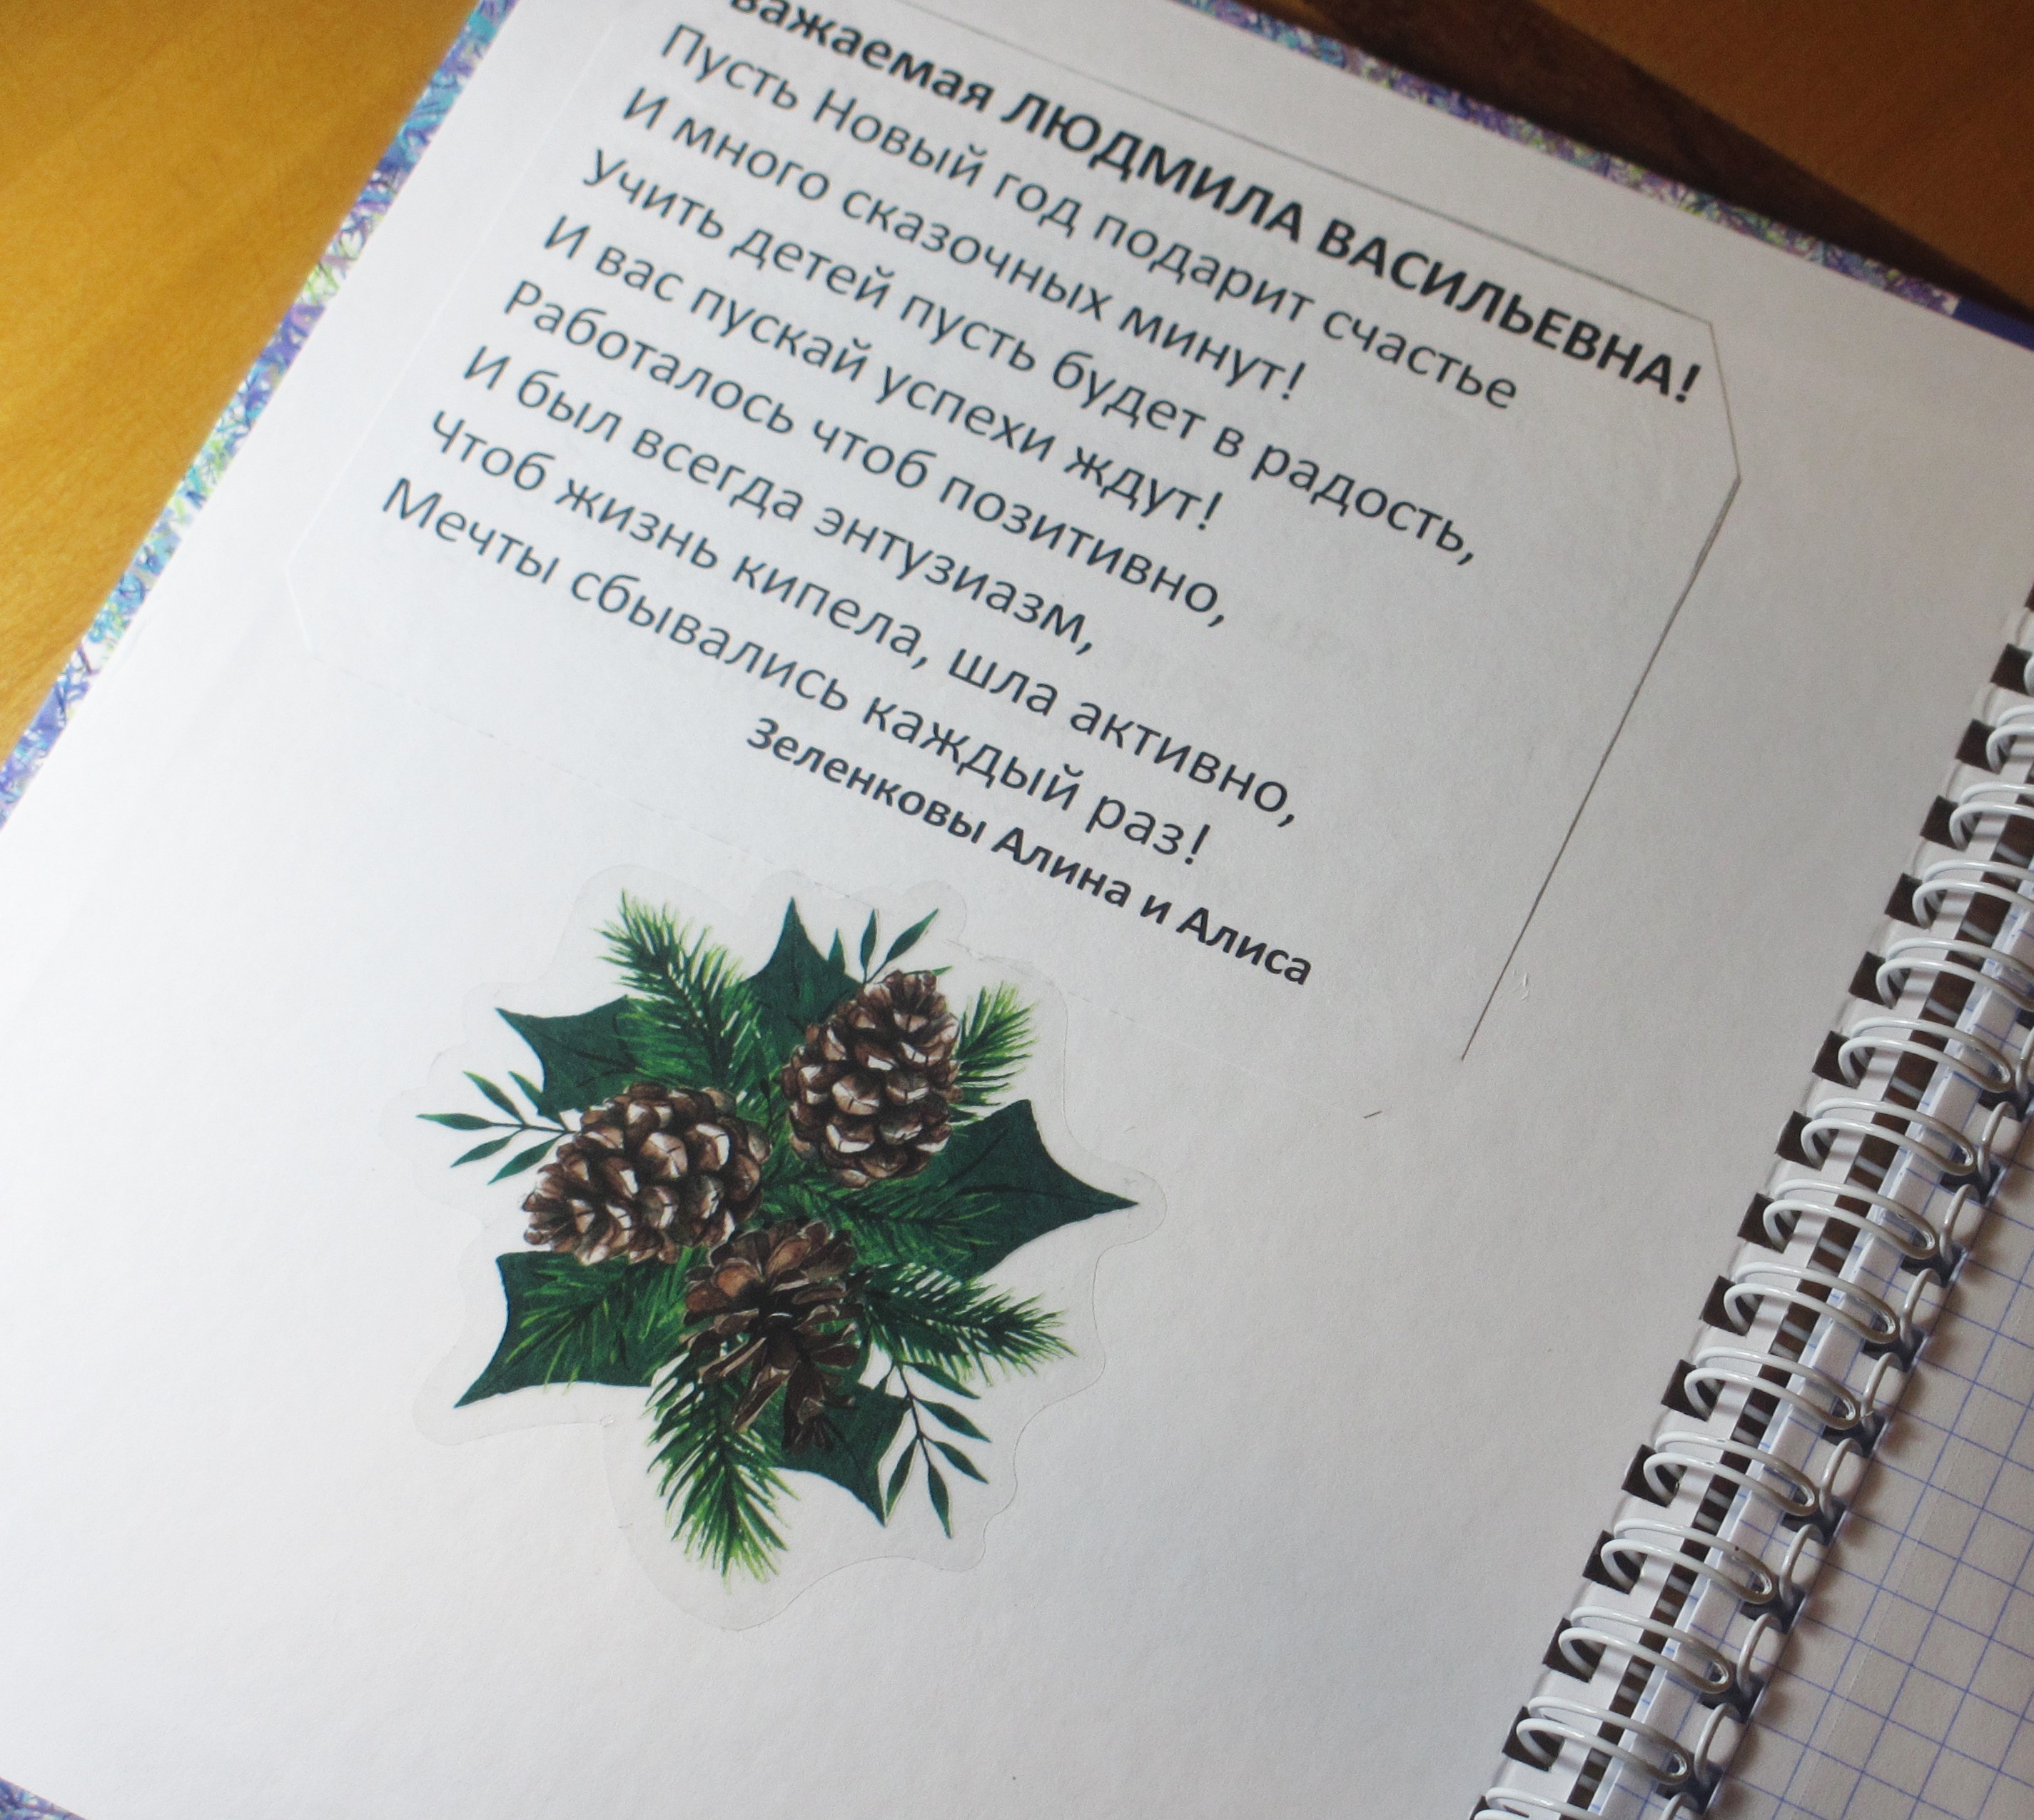 важаемая ЛЮДМИЛА ВАСИЛЬЕВНА!
Пусть Новый год подарит счастье
И много сказочных минут!
Учить детей пусть будет в радость,
И вас пускай успехи ждут!
Работалось чтоб позитивно,
И был всегда энтузиазм,
Чтоб жизнь кипела, шла активно,
Мечты сбывались каждый раз!
Зеленковы Алина и Алиса